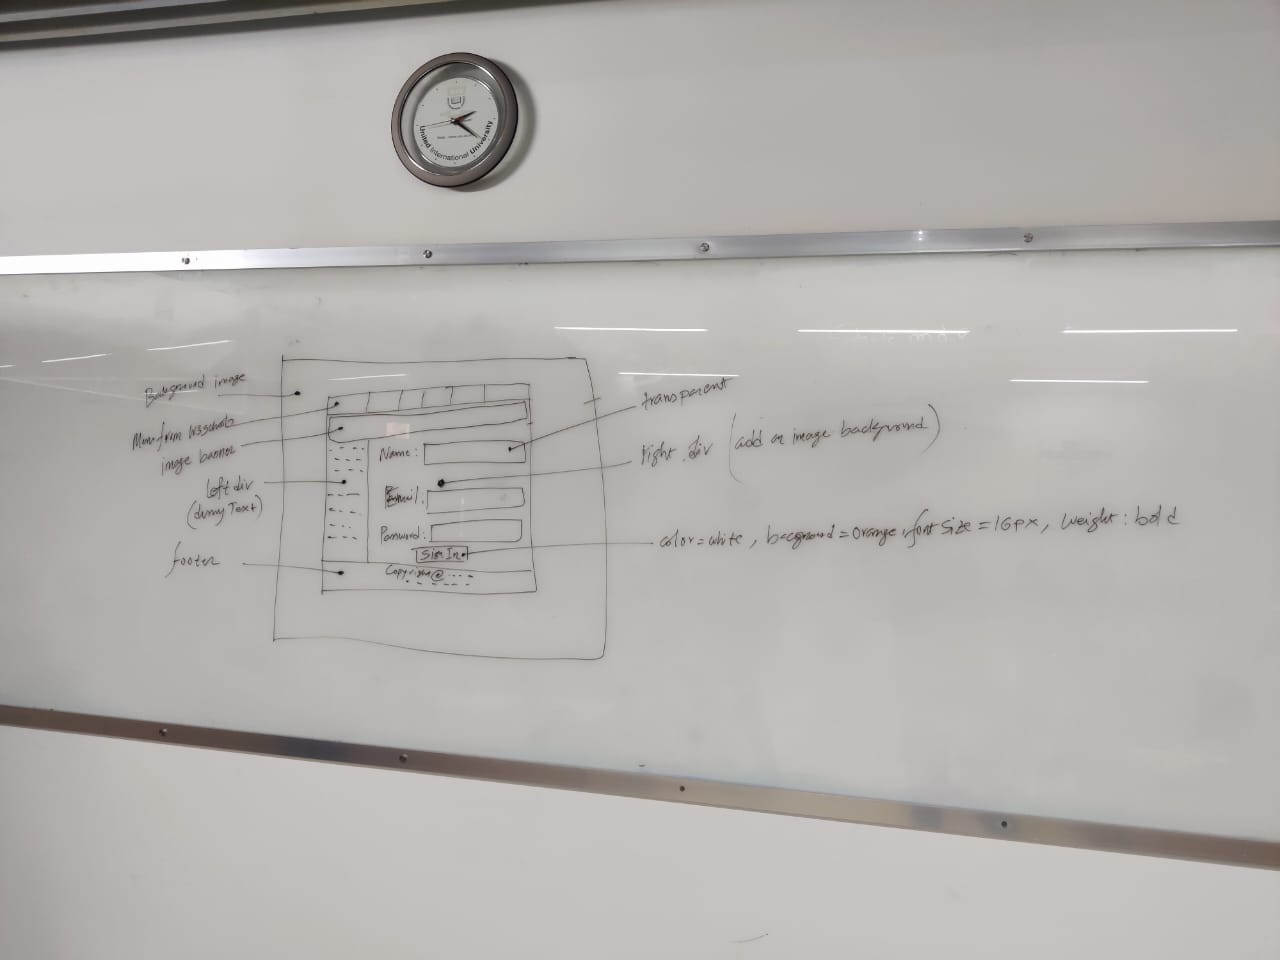 United International University
Background image
Menu from W3schools
image banner
left div
(dumy Text)
footer
Name:
Email:
Password:
Sign In
Copyright@
transparent
right div (add an image background)
color=white, background=Orange, font size=16px, Weight: bold